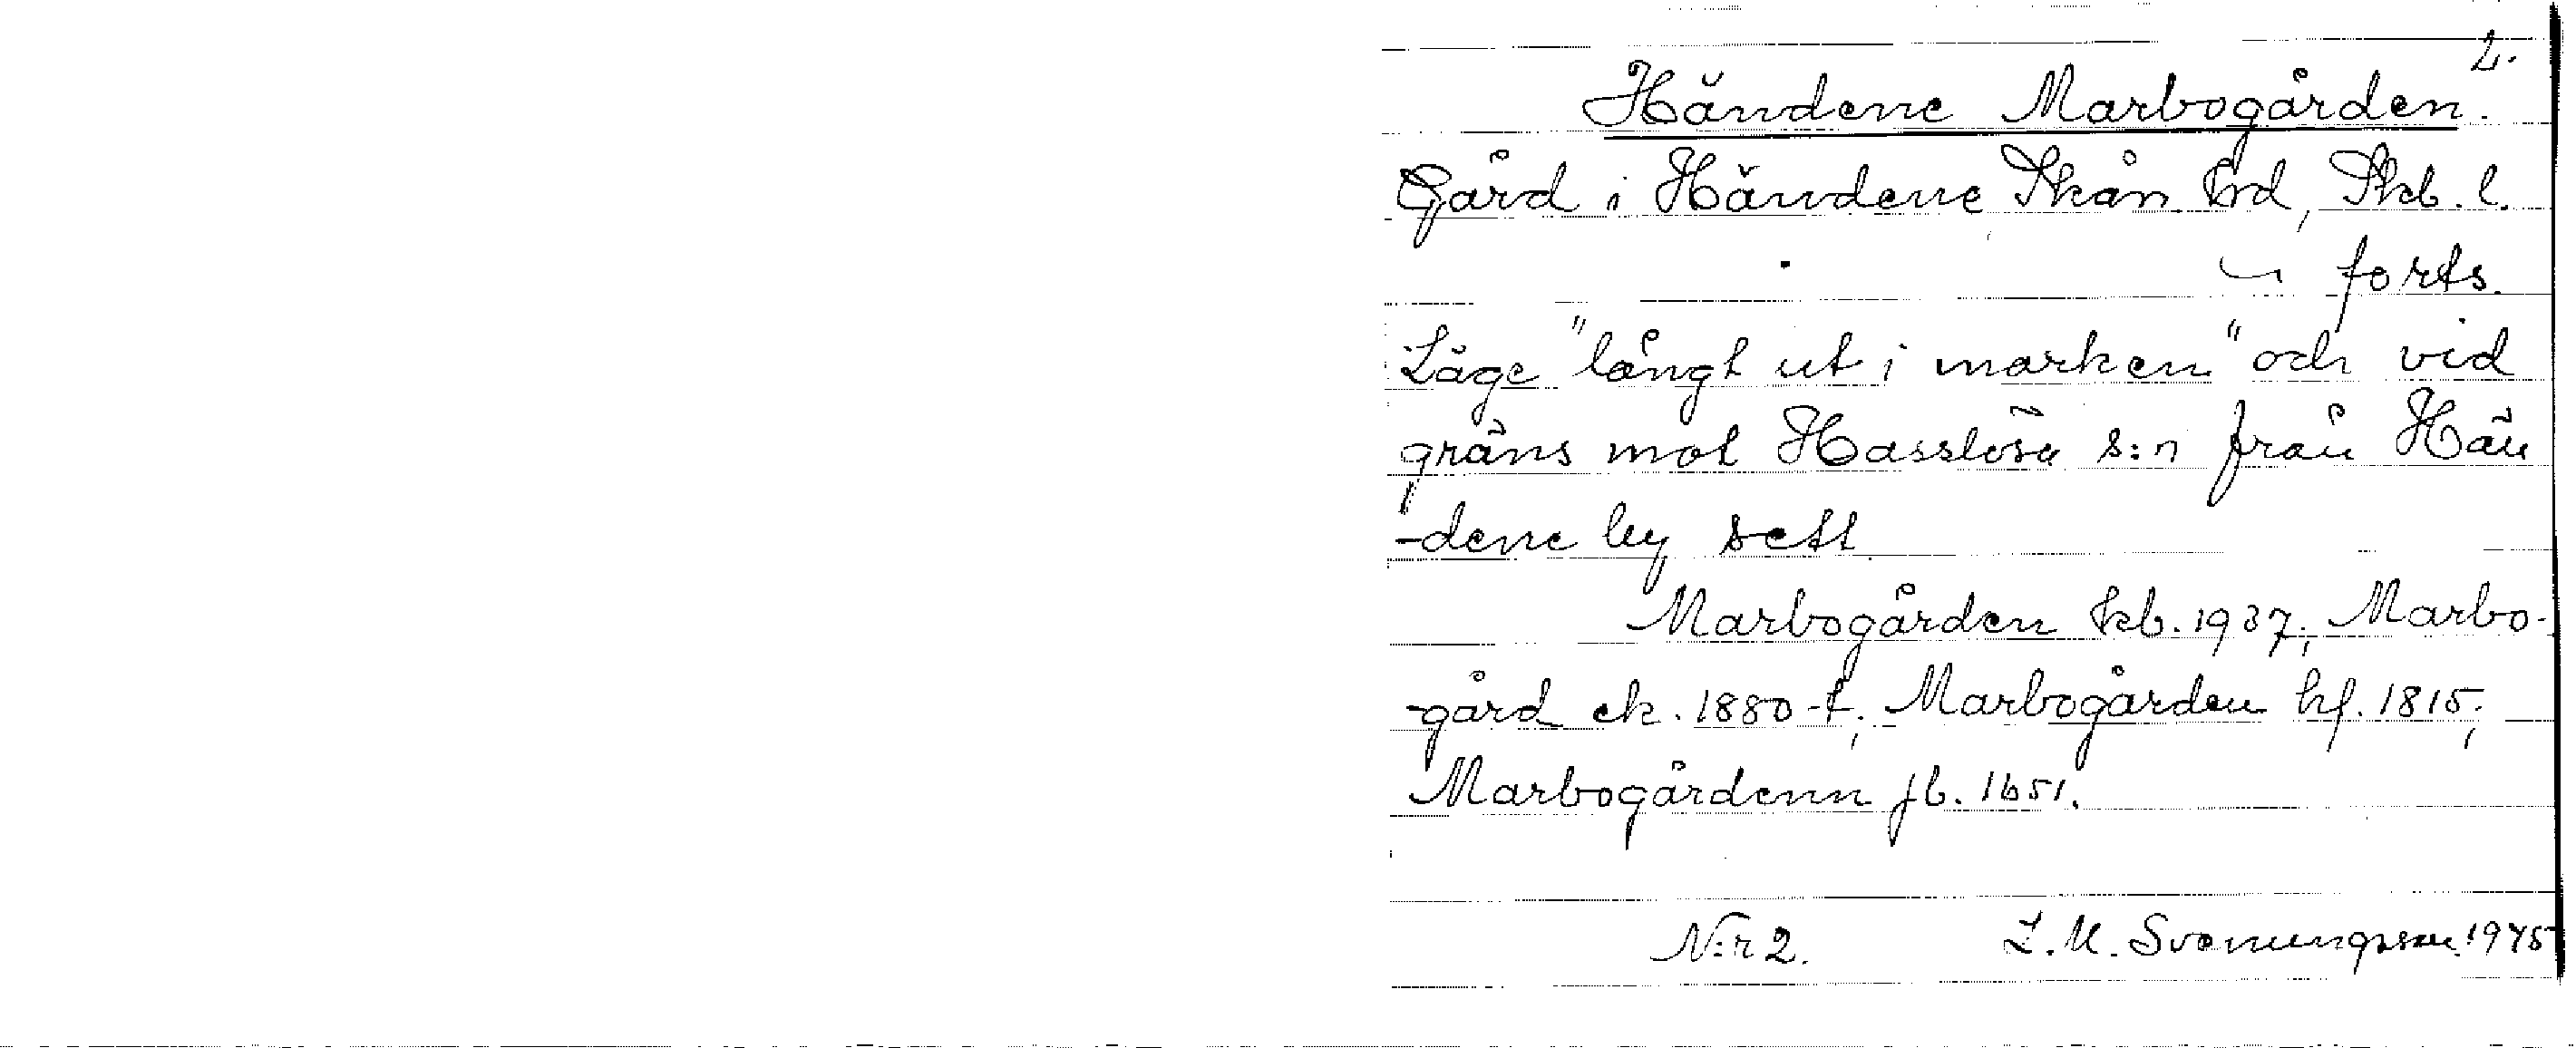 2.
Händene Marbogården.
Gård i Händene Skån. hrd, Skb. l.
forts.
Läge "långt ut i marken" och vid
gräns mot Hasslösa s:n från Hän
-dene by sett
Marbogården kb. 1937; Marbo-
-gård ek. 1880-t; Marbogården hf. 1815;
Marbogårdenn jb. 1651.
N:r 2. L. M. Svenungsson 1945